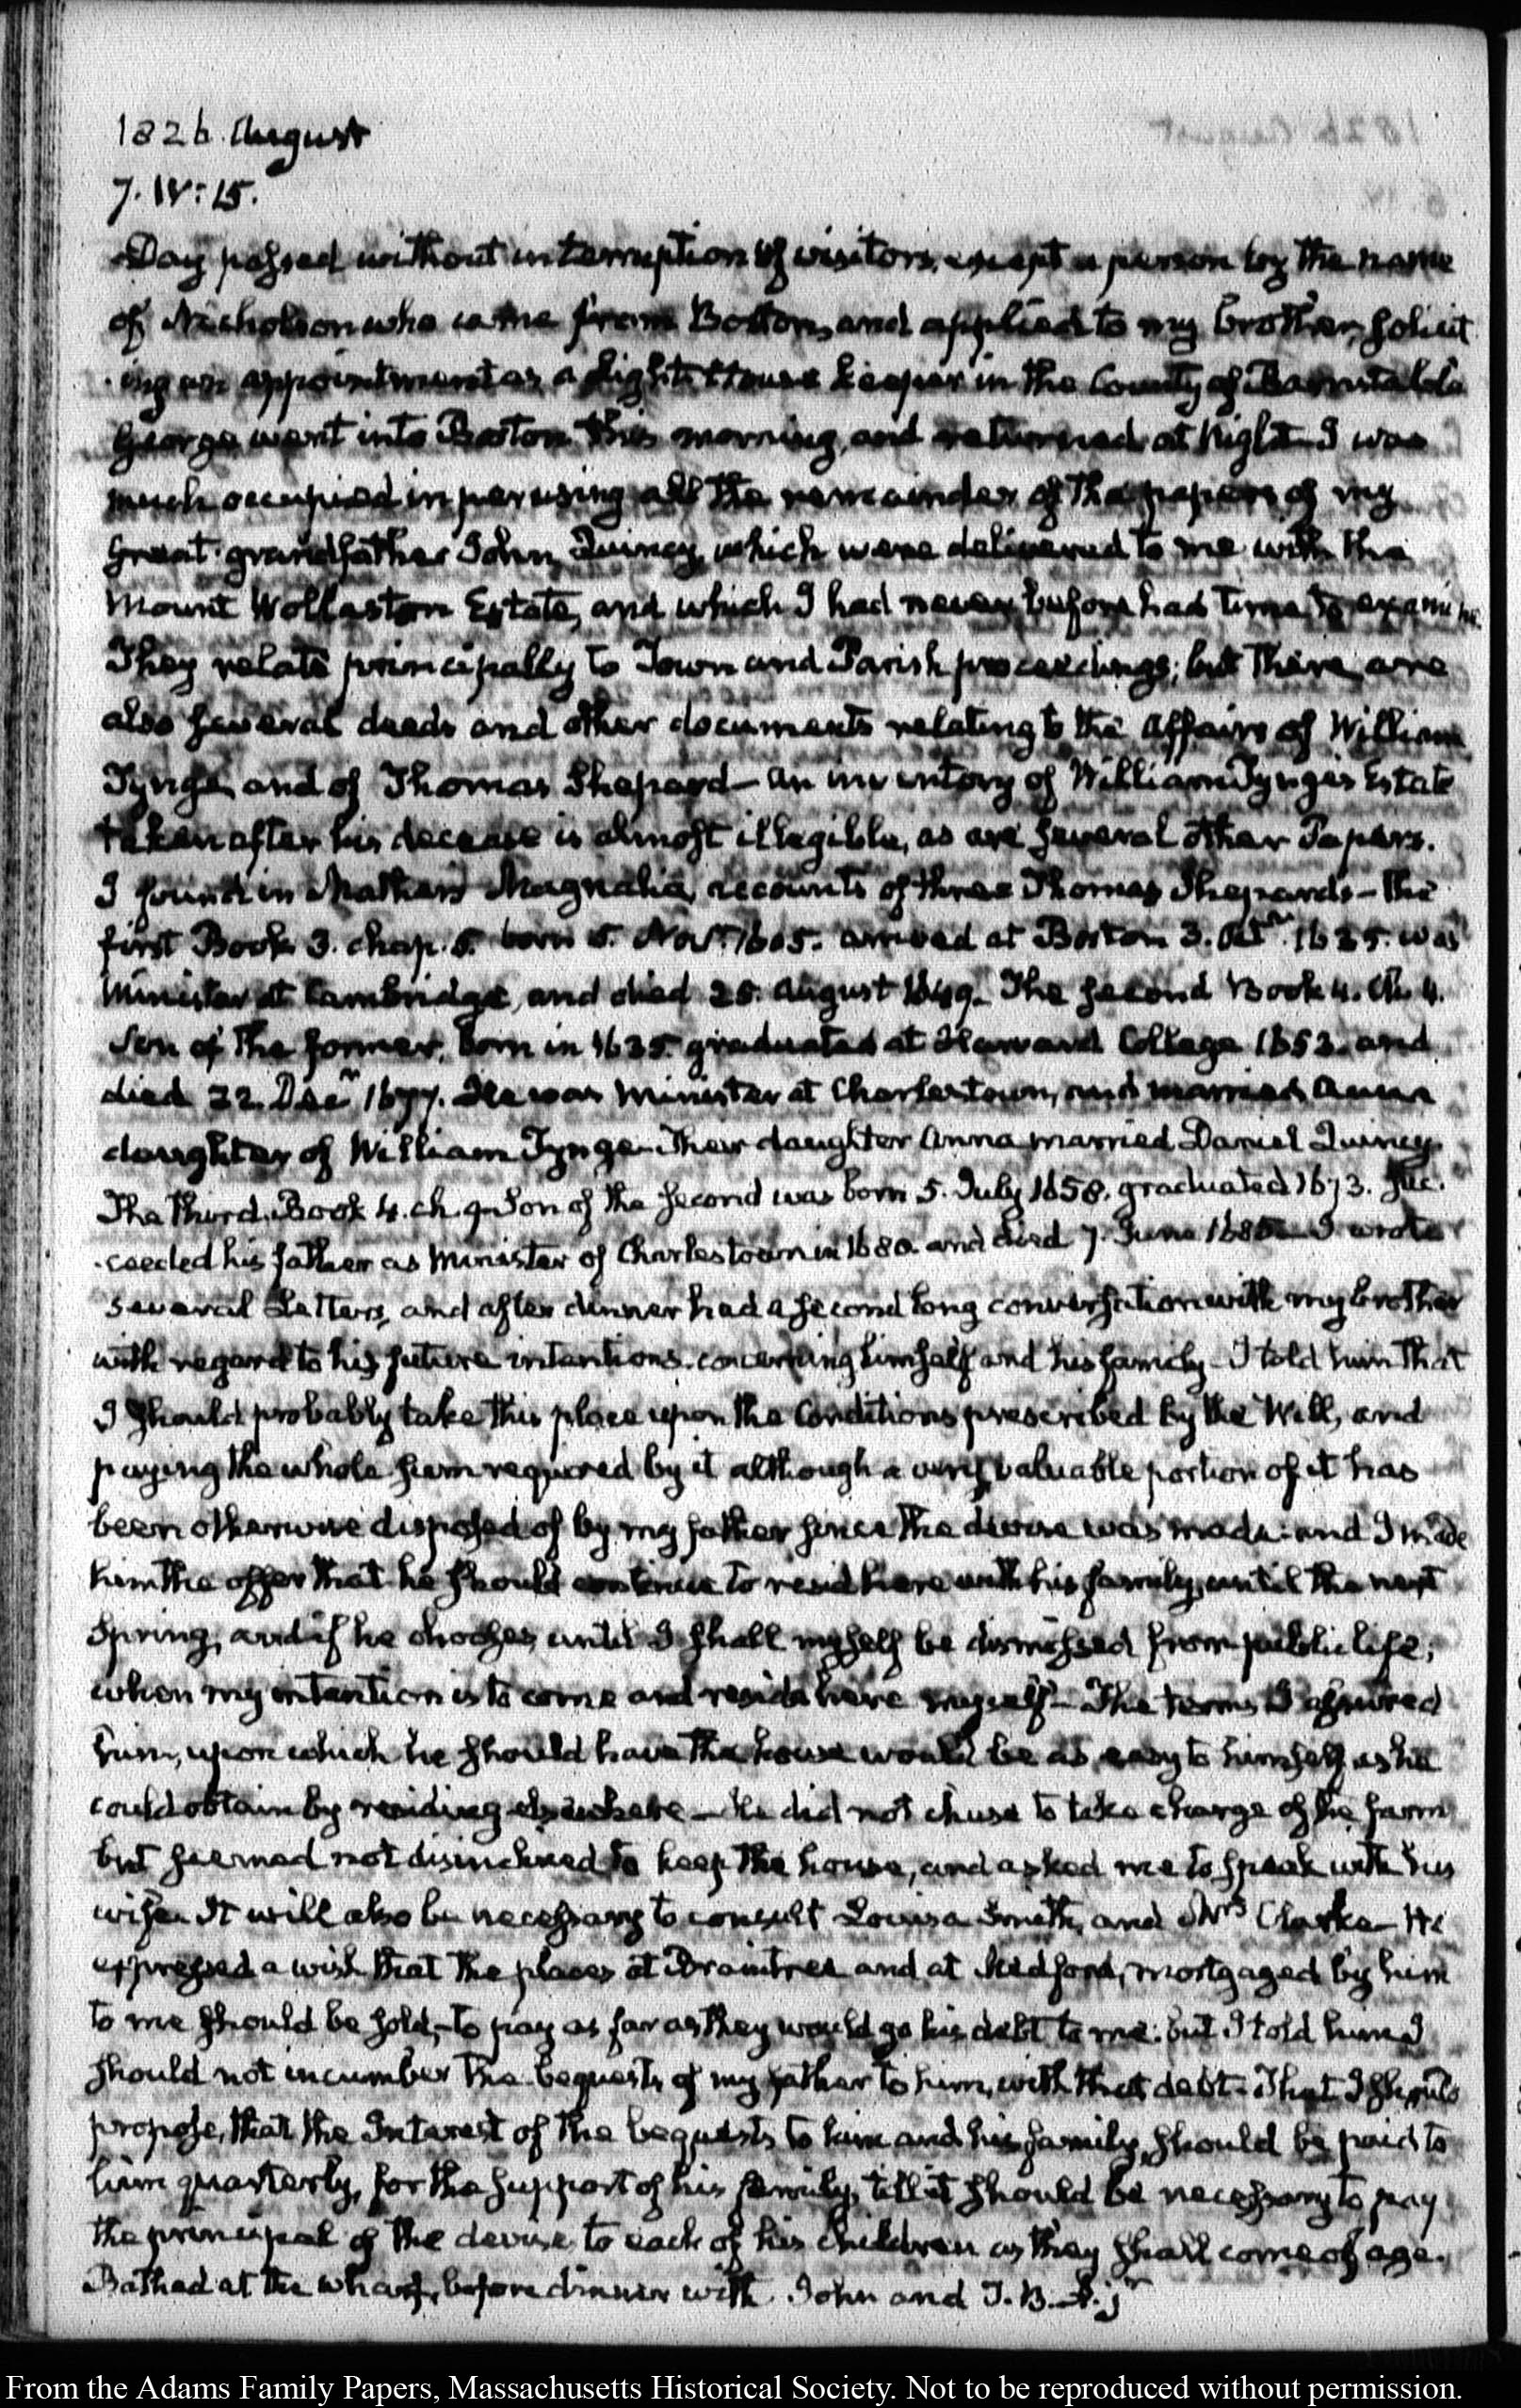 1826. August
7. IV: 15.
Day passed without interruption of visitors, except a person by the name
of Nicholson who came from Boston, and applied to my brother, solicit
ing an appointment as a Light House keeper in the County of Barnstable
George went into Boston this morning, and returned at Night— I was
much occupied in perusing all the remainder of the papers of my
great-grandfather John Quincy, which were delivered to me with the
Mount Wollaston Estate, and which I had never before had time to examine.
They relate principally to Town and Parish proceedings; but there are
also several deeds and other documents relating to the affairs of William
Tynge, and of Thomas Shepard— An inventory of William Tynge's Estate
taken after his decease is almost illegible, as are several other Papers.
I found in Mathers Magnalia, accounts of three Thomas Shepards— the
first Book 3. chap. 5. born 5. Novr. 1605. arrived at Boston 3. Octr. 1635. was
Minister at Cambridge, and died 25. August 1649— The second Book 4. Ch. 4.
Son of the former, born in 1635. graduated at Harvard College 1653. and
died 22. Decr 1677. He was Minister at Charlestown, and married Anna
daughter of William Tynge— Their daughter Anna married Daniel Quincy.
The third. Book 4. ch. 9— Son of the second was born 5. July 1658. graduated 1673. Suc-
ceeded his father as Minister of Charlestown in 1680. and died 7. June 1685— I wrote
several Letters, and after dinner had a second long conversation with my brother
with regard to his future intentions. concerning himself and his family— I told him that
I should probably take this place upon the Conditions prescribed by the Will, and
paying the whole sum required by it although a very valuable portion of it has
been otherwise disposed of by my father since the devise was made: and I made
him the offer that he should continue to reside here with his family, until the next
Spring, and if he chooses, until I shall myself be dismissed from public life;
when my intention is to come and reside here myself— The terms I assured
him, upon which he should have the house would be as easy to himself as he
could obtain by residing elsewhere— He did not chuse to take charge of the farm
but seemed not disinclined to keep the house, and asked me to speak with his
wife. It will also be necessary to consult Louisa Smith, and Mrs Clarke— He
expressed a wish that the places at Braintree and at Medford, mortgaged by him
to me should be sold,— to pay as far as they would go his debt to me: but I told him I
should not incumber the bequests of my father to him, with that debt— That I should
propose, that the Interest of the bequests to him and his family, should be paid to
him quarterly, for the support of his family, till it should be necessary to pay
the principal of the devise to each of his children as they shall come of age.
Bathed at the wharf, before dinner with John and T. B. A. jr
From the Adams Family Papers, Massachusetts Historical Society. Not to be reproduced without permission.